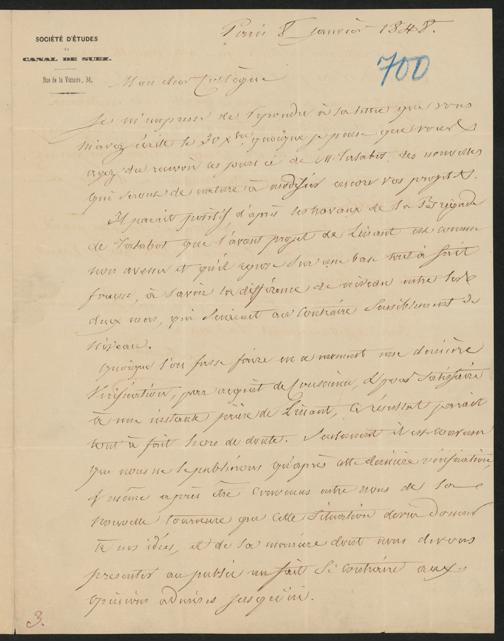 SOCIÉTÉ D'ÉTUDES
DU
CANAL DE SUEZ.
Rue de la Victoire, 34.
Paris 8 Janvier 1848.
700
Mon cher Collègue
Je m'empresse de répondre à la lettre que vous
m'avez écrite le 30 Xbre, quoique je pense que vous
ayez du recevoir ces jours ci de M. Talabot, des nouvelles
qui seront de nature à modifier encore vos projets.
Il parait positif, d'après les travaux de la Brigade
de Talabot que l'avant projet de Linant est comme
non avenu et qu'il repose sur une base tout à fait
fausse, à savoir la différence de niveau entre les
deux mers, qui seraient au contraire sensiblement de
niveau.
Quoique l'on fasse faire en ce moment une dernière
vérification, par acquit de Conscience, et pour satisfaire
à une instante prière de Linant, ce résultat parait
tout à fait hors de doute. Seulement il est convenu
que nous ne le publierons qu'après cette dernière vérification,
et même après être convenus entre nous de la
nouvelle tournure que cette situation devra donner
à nos idées, et de la manière dont nous devons
présenter au public un fait si contraire aux
opinions admises jusqu'ici.
3.